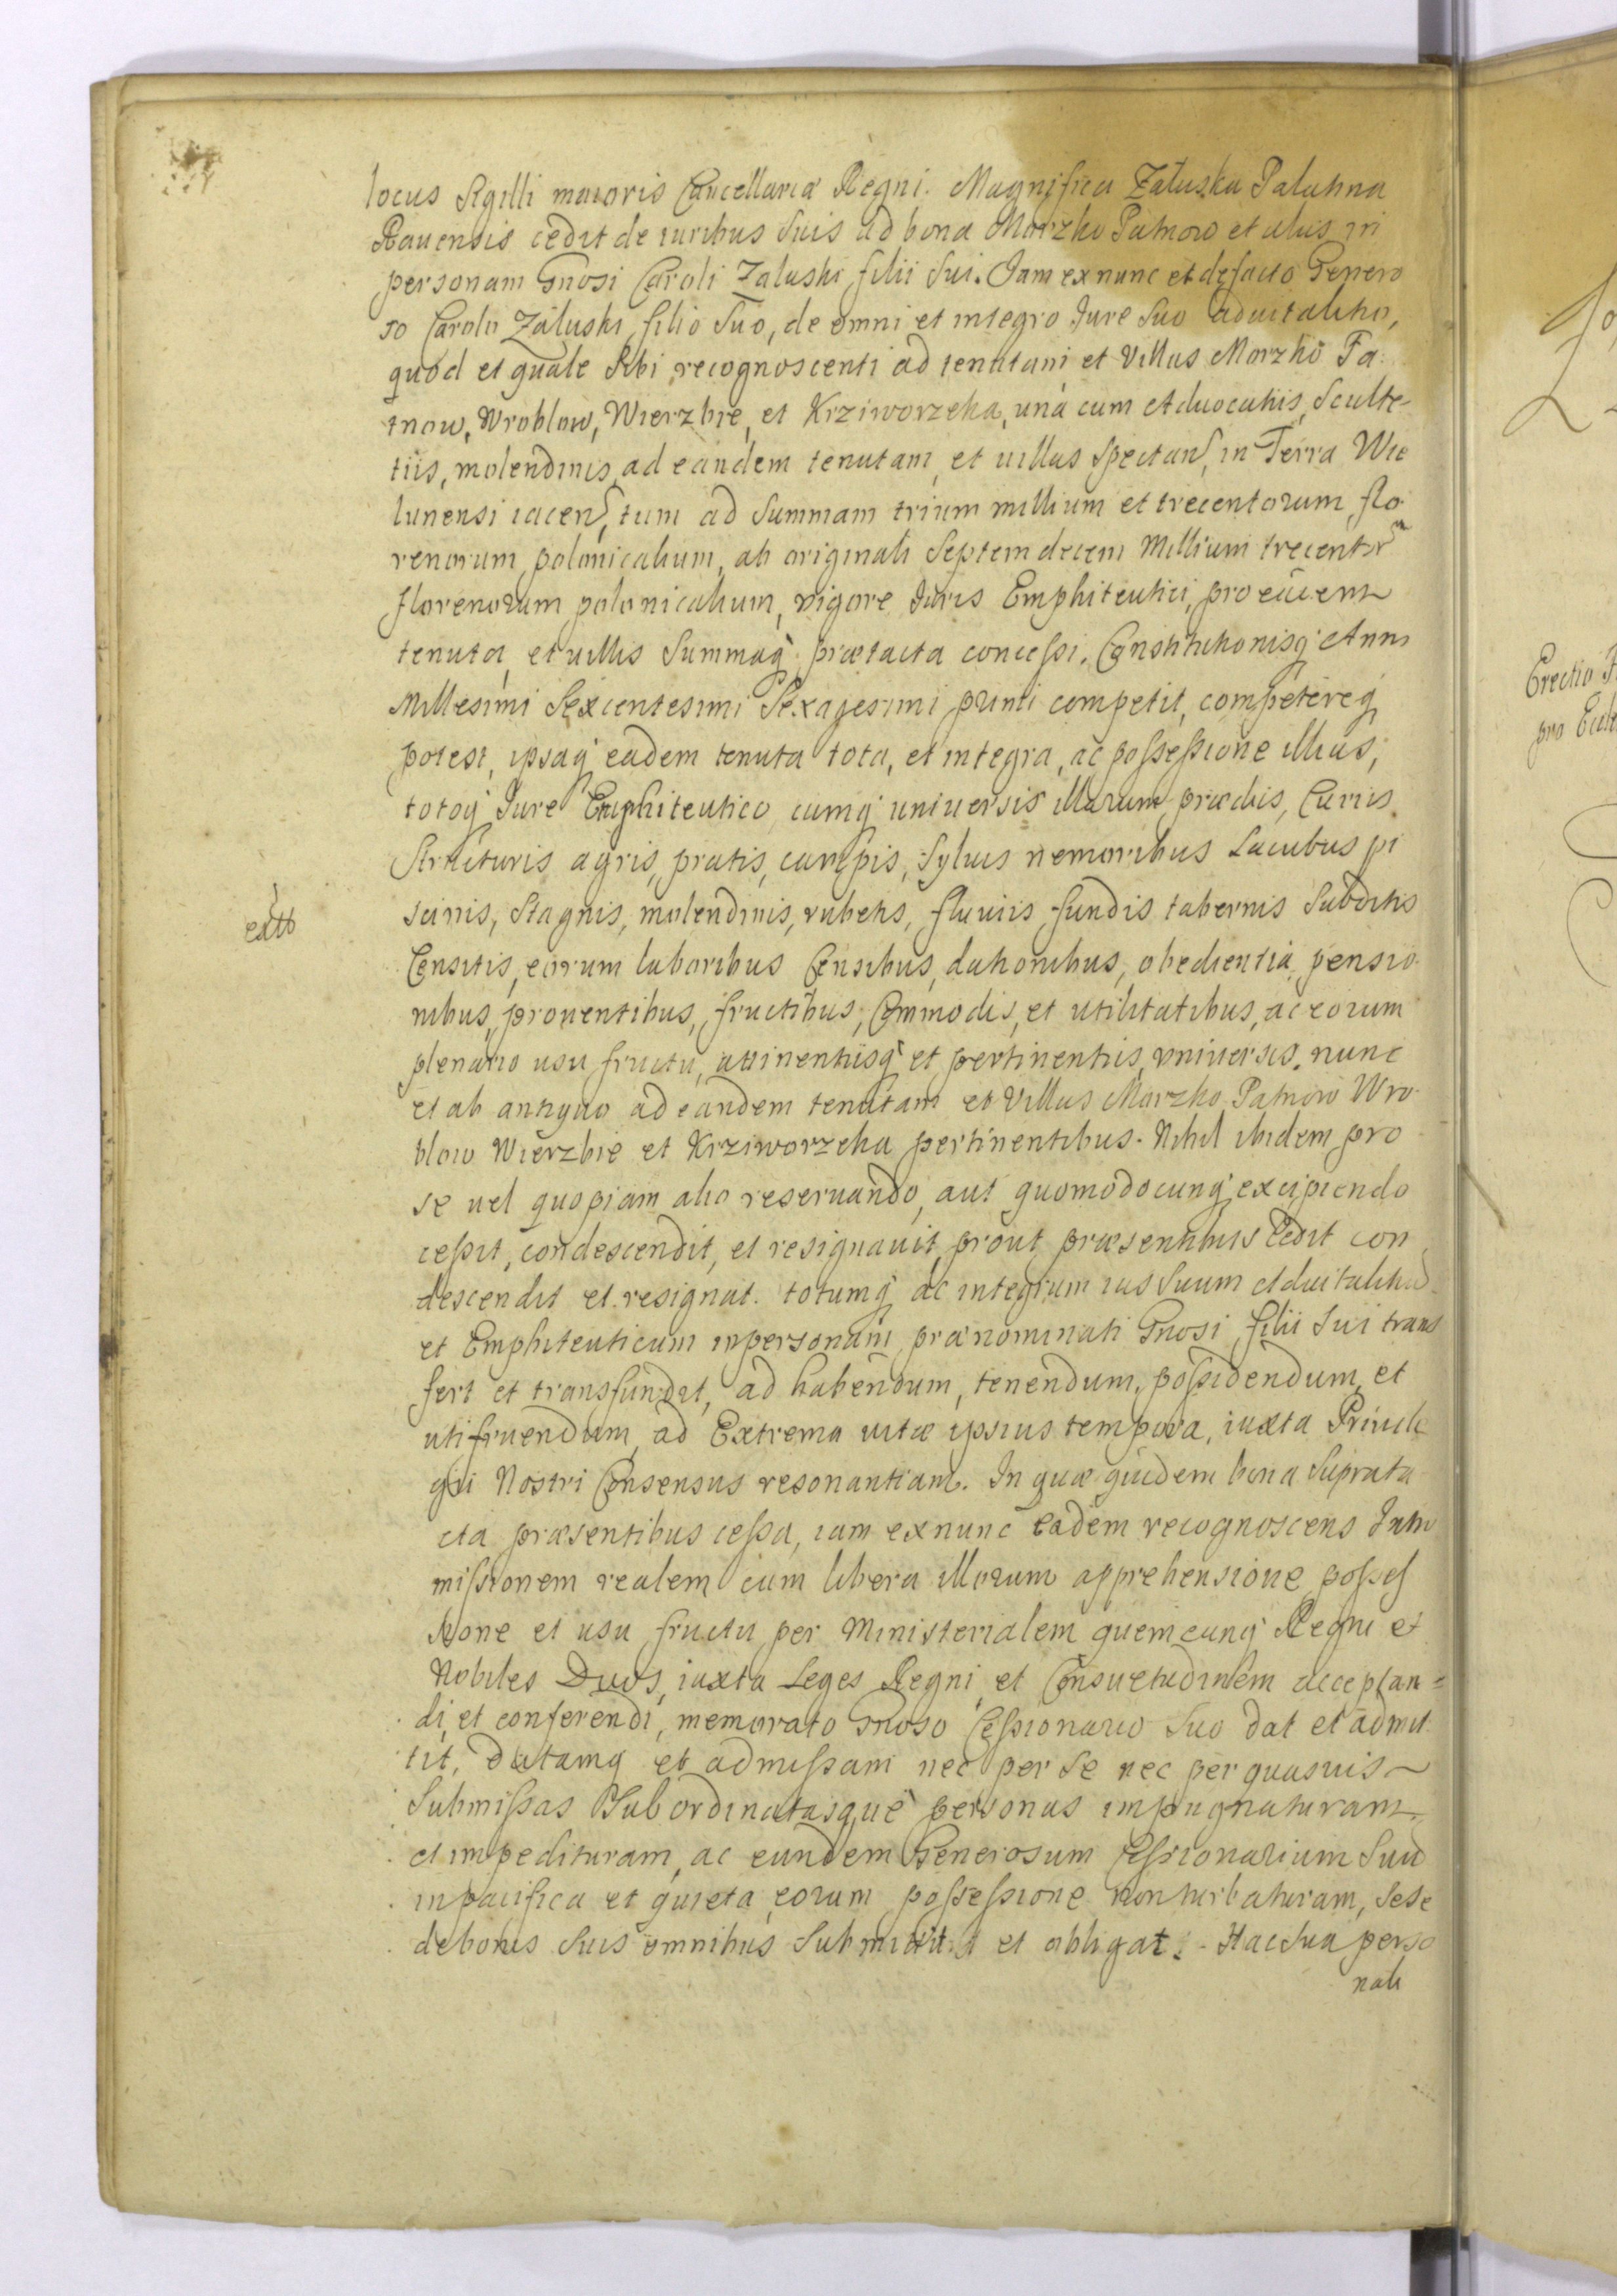 locus Sigilli maioris Cancellariæ Regni. Magnifica Załuska Palatina
Rauensis cedit de iuribus Suis ad bona Morzko Patnow et aliis in
personam Gnosi Caroli Zaluski filii Sui. Jam ex nunc et defacto Genero
so Carolo Zaluski filio Suo, de omni et integro Jure Suo aduitalitio,
quod et quale Sibi recognoscenti ad tenutam et Villas Morzko Pa
tnow, Wroblow, Wierzbie, et Krziworzeka, una cum Aduocatiis, Sculte-
tiis, molendinis, ad eandem tenutam et uillas Spectan, in Terra Wie
lunensi iacen, tum ad Summam trium millium et trecentorum flo
renorum polonicalium, ab originali Septemdecem Millium trecentor
florenorum polonicalium, vigore Juris Emphiteutici, pro eiusem
tenuta et uillis Summaq præetacta concessi, Constitutionisq Anni
Millesimi Sexcentesimi Sexagesimi primi competit, competereq
potest, ipsaq eadem tenuta tota, et integra, ac possessione illius,
totoq Jure Emphiteutico cumq uniuersis illarum prædiis, Curiis
Structuris agris, pratis, campis, Syluis nemoribus Lacubus pi
scinis, Stagnis, molendinis, rubetis, fluuiis fundis tabernis Subditis
Censitis, eorum laboribus Censibus, dationibus, obedientia, pensio
nibus, prouentibus, fructibus, Commodis, et utilitatibus, ac eorum
plenario usu fructu, attinentiisq et pertinentiis, vniuersis, nunc
et ab antiquo ad eandem tenutam et Villas Morzko Patnow Wro
blow Wierzbie et Krziworzeka pertinentibus. Nihil ibidem pro
se uel quopiam alio reseruando, aut quomodocunq excipiendo
cessit, condescendit, et resignauit, prout præsentibus Cedit con
descendit et resignat. totumq ac integrum ius Suum aduitalitiu
et Emphiteuticum in personam prænominati Gnosi filii Sui trans
fert et transfundit, ad habendum, tenendum, possidendum, et
utifruendum, ad Extrema uitæ ipsius tempora, iuxta Priuile
gii Nostri Consensus resonantiam. In quæ quidem bona Suprata
cta præsentibus cessa, iam ex nunc eadem recognoscens Intro
missionem realem cum libera illorum apprehensione posses
sione et usu fructu per Ministerialem quemcunq Regni et
Nobiles Duos, iuxta Leges Regni, et Consuetudinem acceptan=
di, et conferendi, memorato Gnoso Cessionario Suo dat et admit
tit. Datamq et admissam nec per Se nec per quasuis
Submissas Subordinatasque personas impugnaturam
et impedituram, ac eundem Generosum Cessionarium Suu
in pacifica et quieta eorum possessione non turbaturam, Sese
de bonis Suis omnibus Submittit et obligat. Hac Sua perso
nali